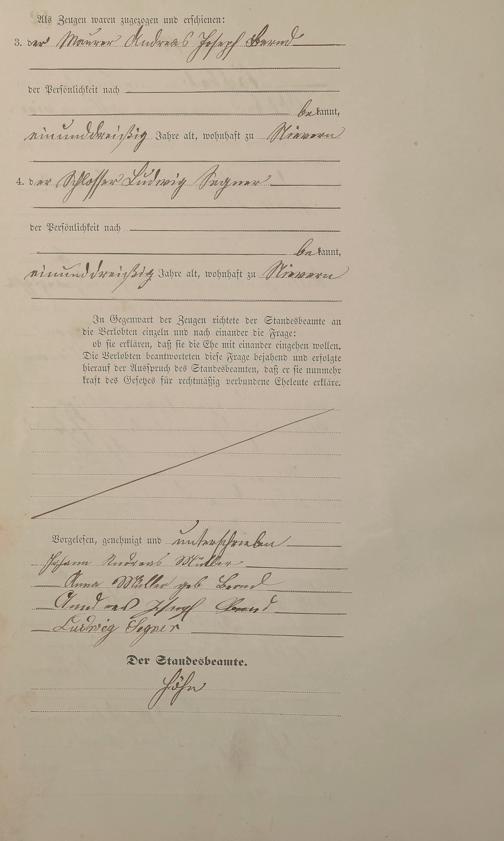 Als Zeugen waren zugezogen und erschienen:
3. der Maurer Andreas Joseph Bernd
der Persönlichkeit nach
bekannt,
einunddreißig Jahre alt, wohnhaft zu Nievern
4. der Schlosser Ludwig Segner
der Persönlichkeit nach
bekannt,
einunddreißig Jahre alt, wohnhaft zu Nievern
In Gegenwart der Zeugen richtete der Standesbeamte an
die Verlobten einzeln und nach einander die Frage:
ob sie erklären, daß sie die Ehe mit einander eingehen wollen.
Die Verlobten beantworteten diese Frage bejahend und erfolgte
hierauf der Ausspruch des Standesbeamten, daß er sie nunmehr
kraft des Gesetzes für rechtmäßig verbundene Eheleute erkläre.
Vorgelesen, genehmigt und unterschrieben
Johann Andreas Müller
Anna Müller geb Bernd
Andreas Joseph Bernd
Ludwig Segner
Der Standesbeamte.
Höhn